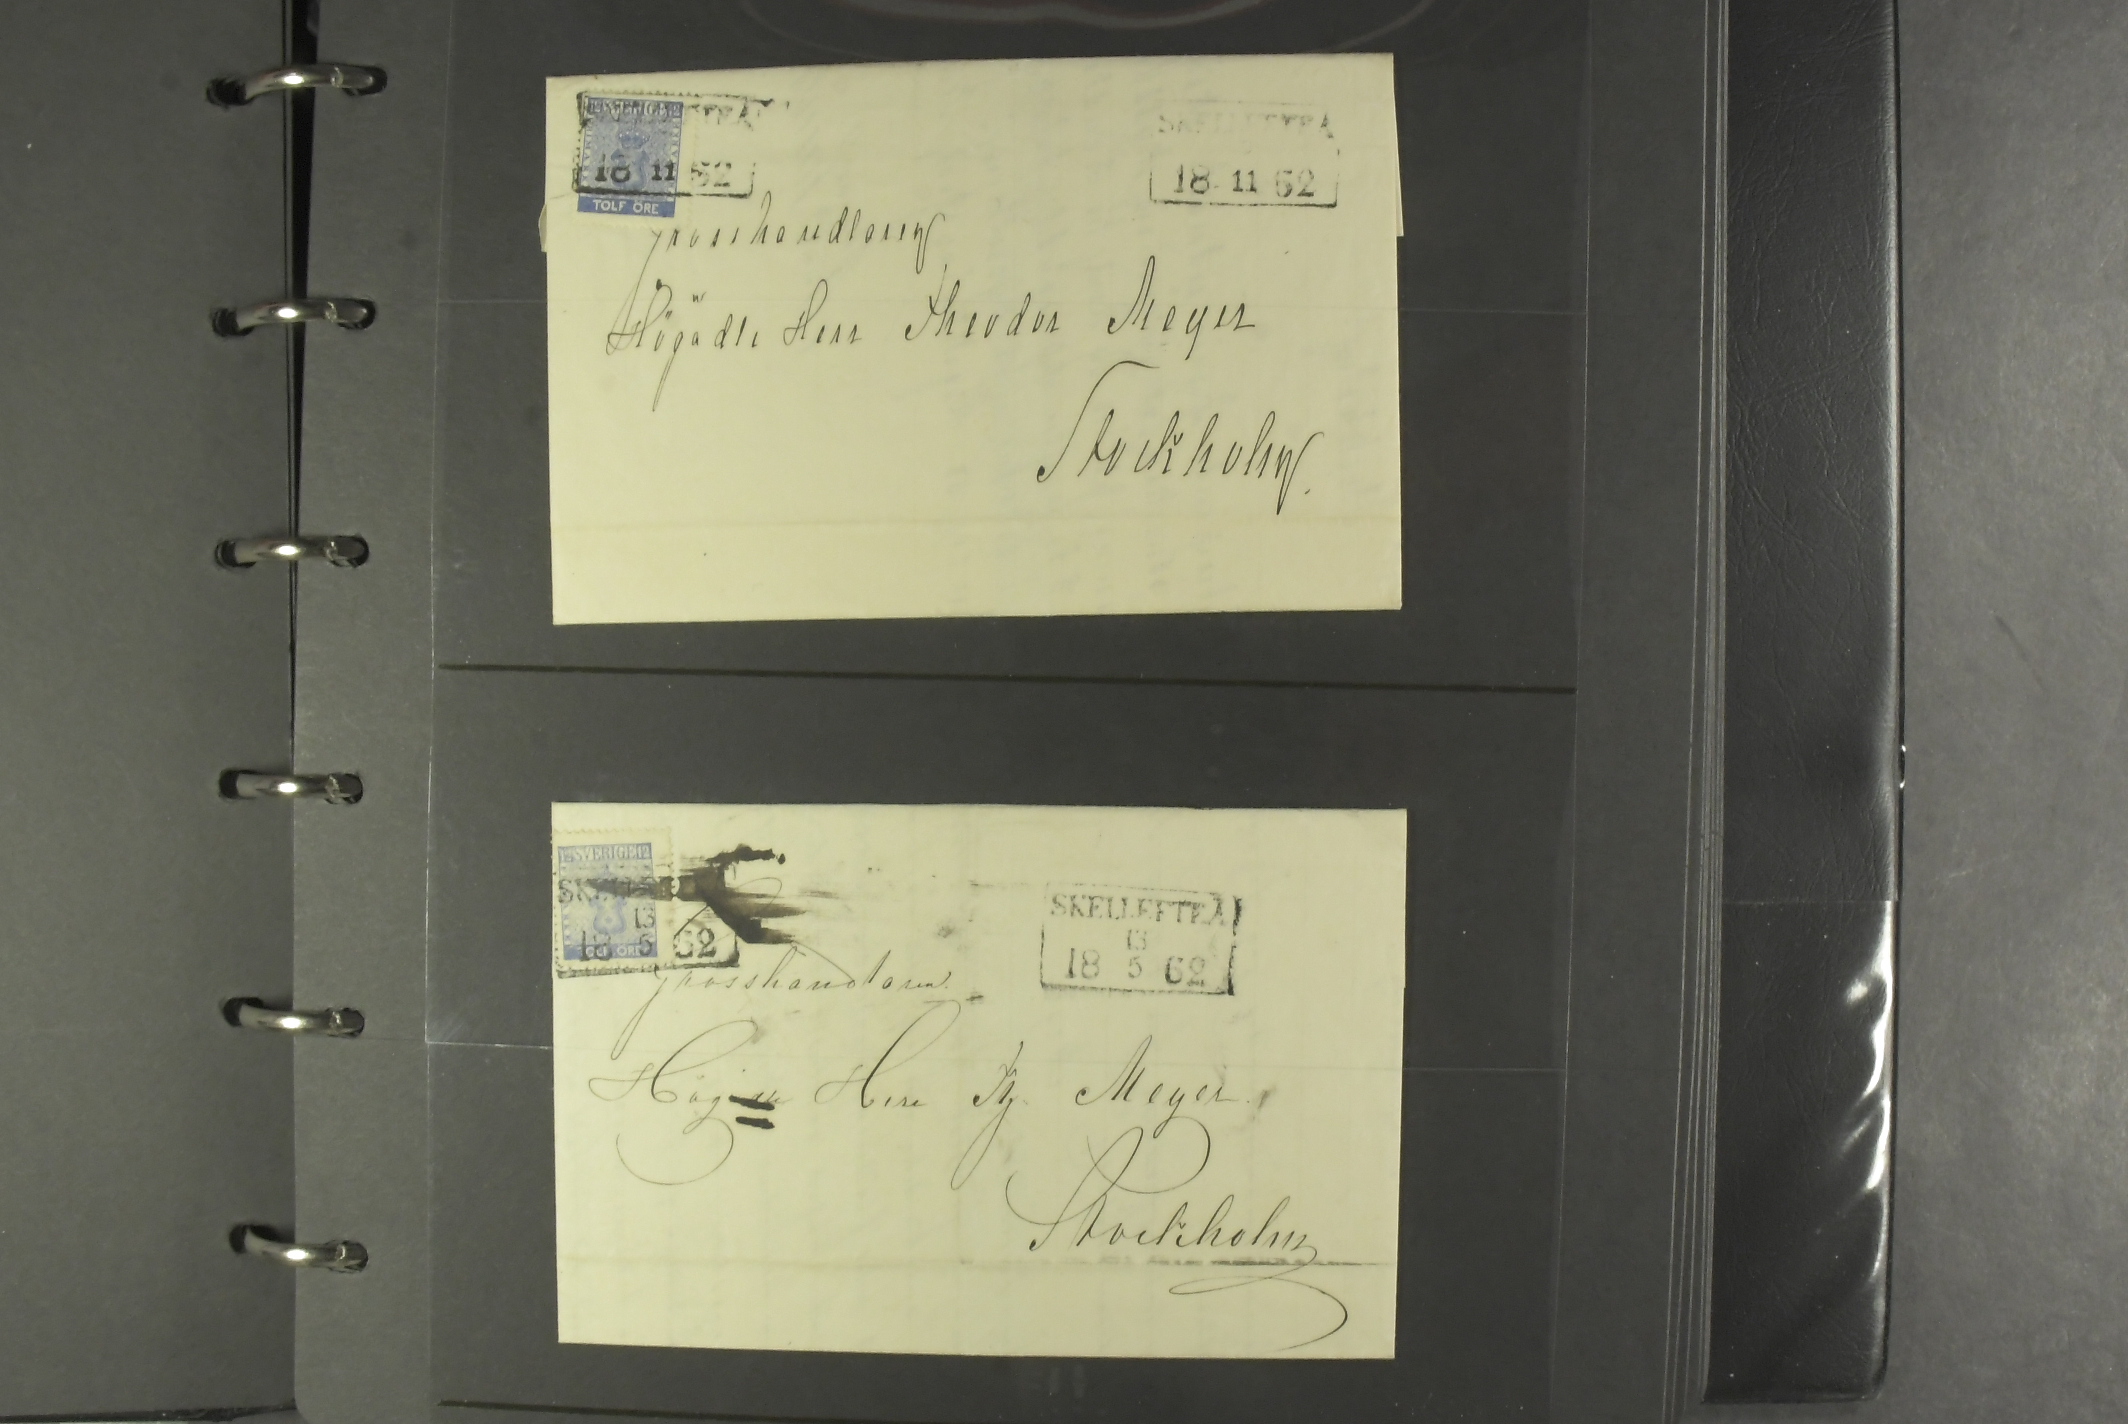 12 SVERIGE 12
TOLF ÖRE
18 11 62
SKELLEFTEÅ
18 11 62
Grosshandlaren
Högädle Herr Theodor Meyer
Stockholm.
SVERIGE 12
TOLF ÖRE
13
18 5 62
SKELLEFTEÅ
13
18 5 62
Grosshandlaren
Herr Th. Meyer.
Stockholm